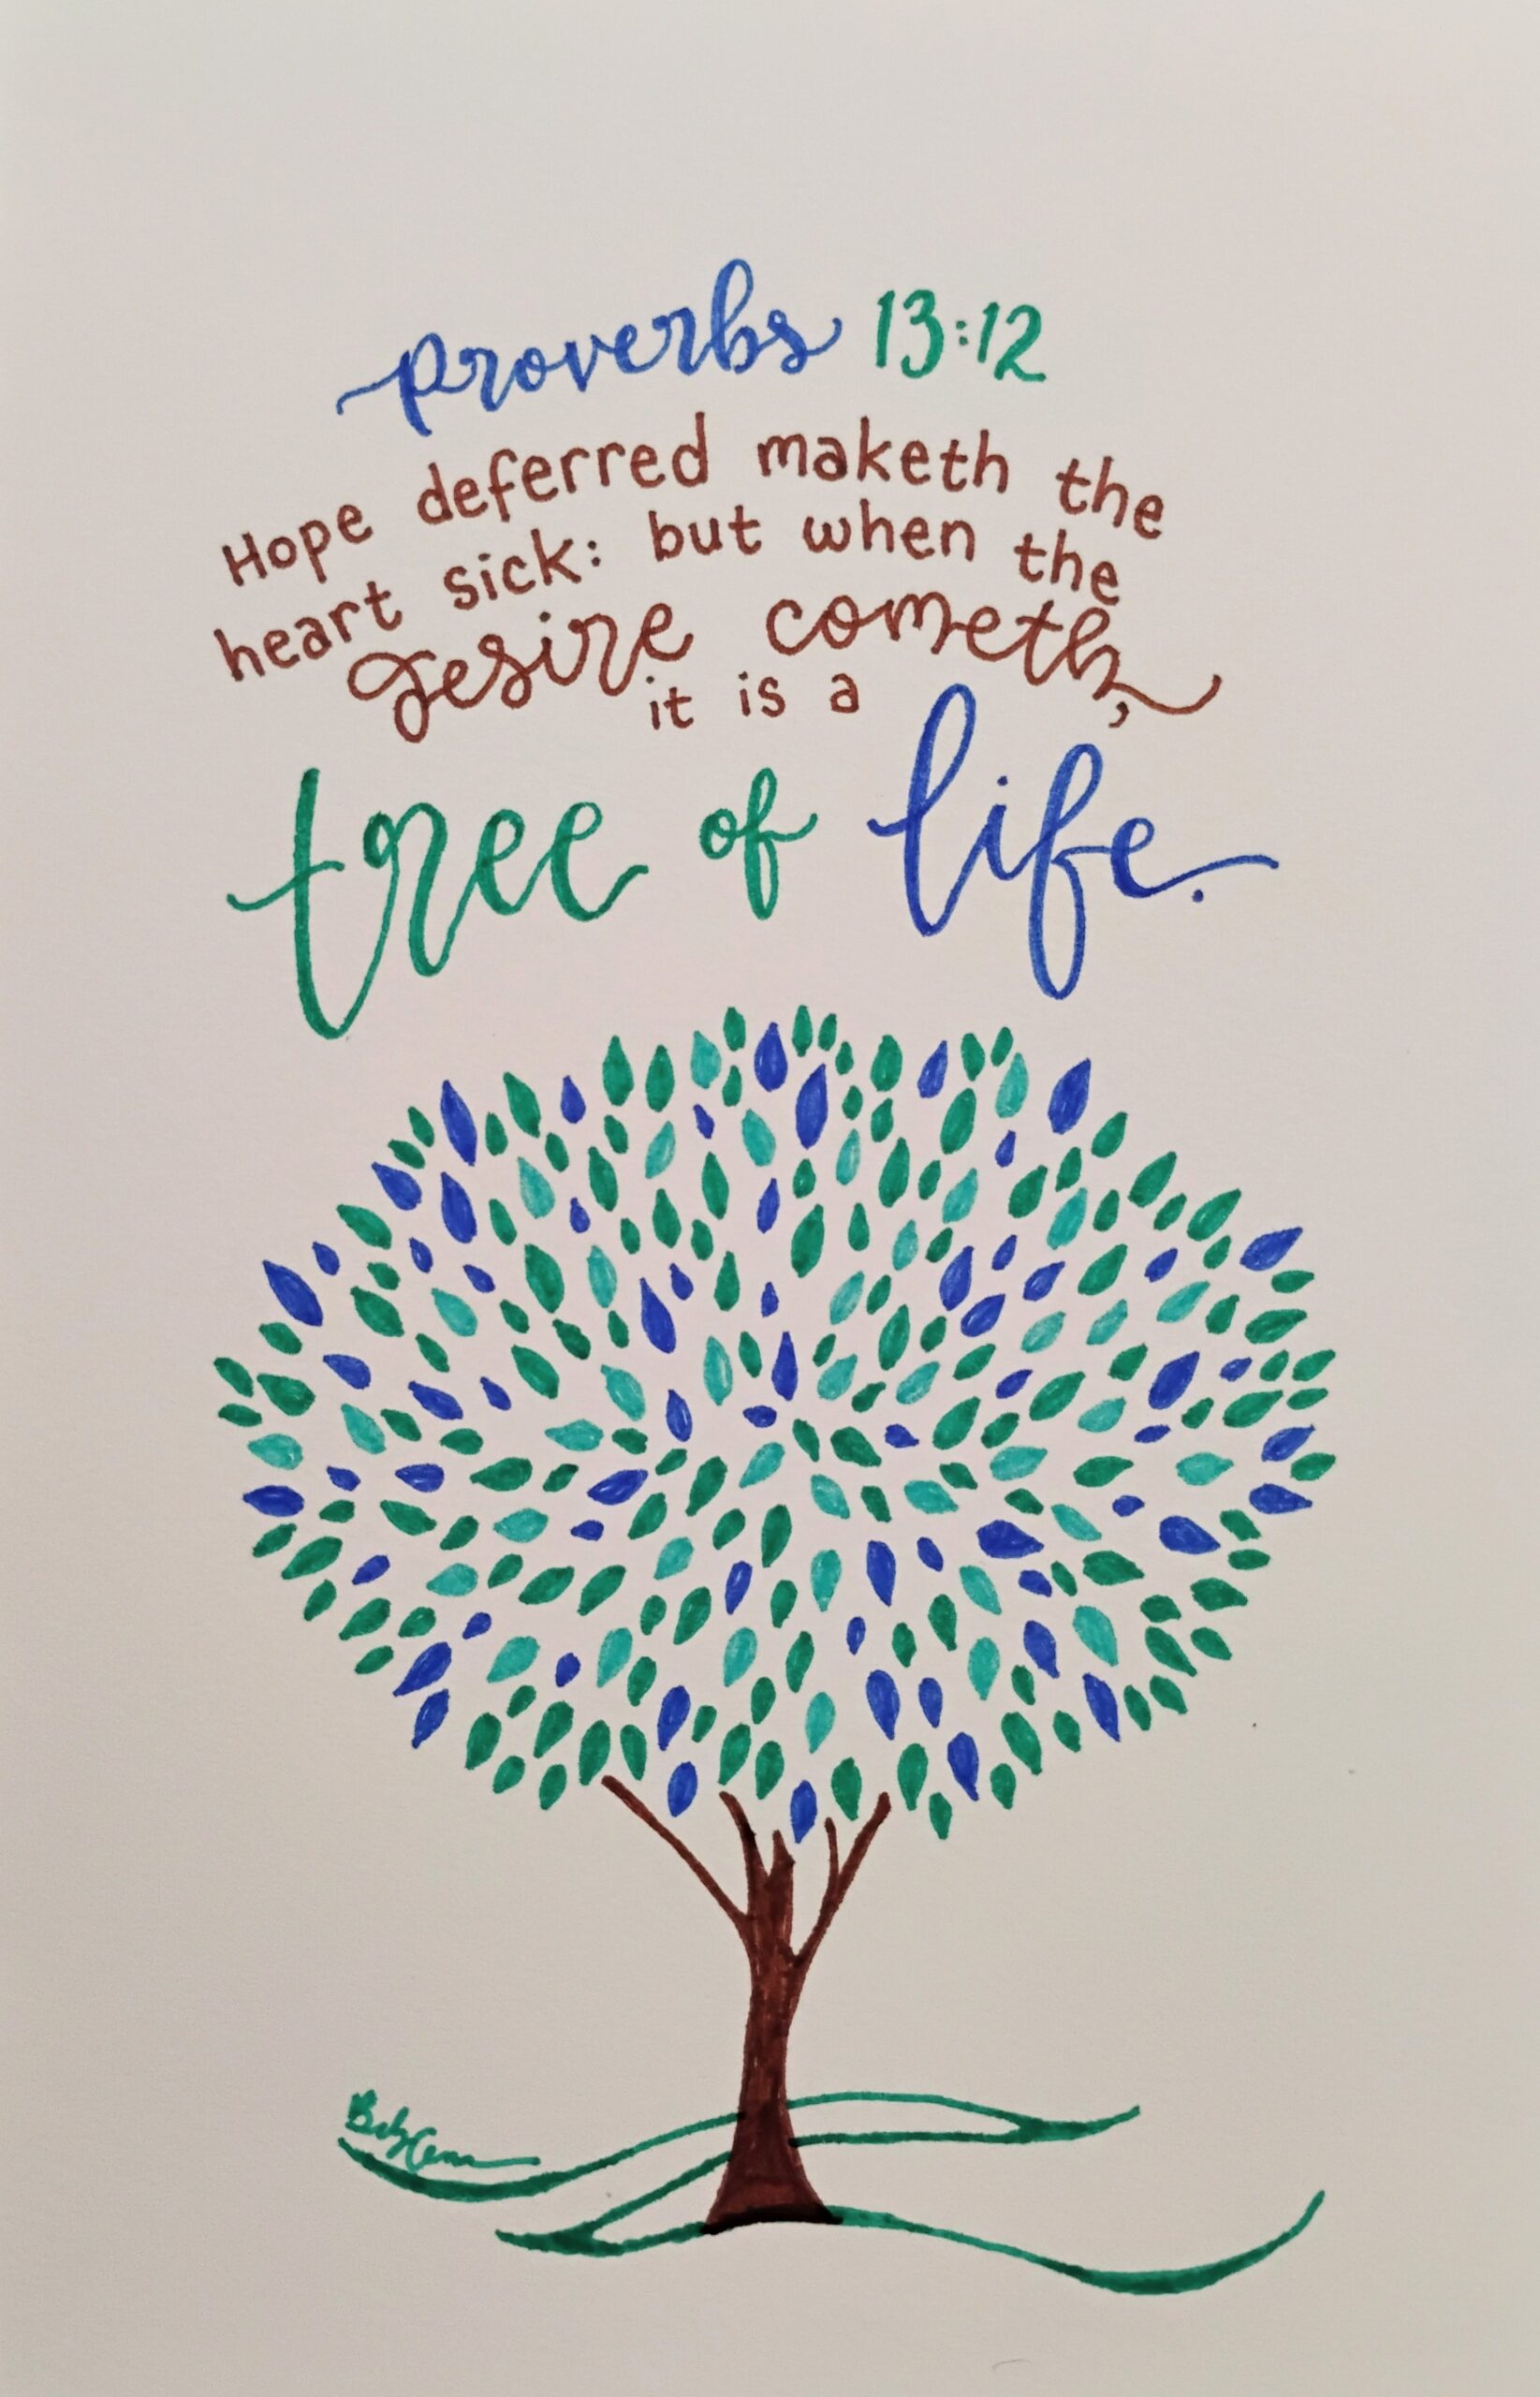 proverbs 13:12
Hope deferred maketh the
heart sick: but when the
desire cometh,
it is a
tree of life.